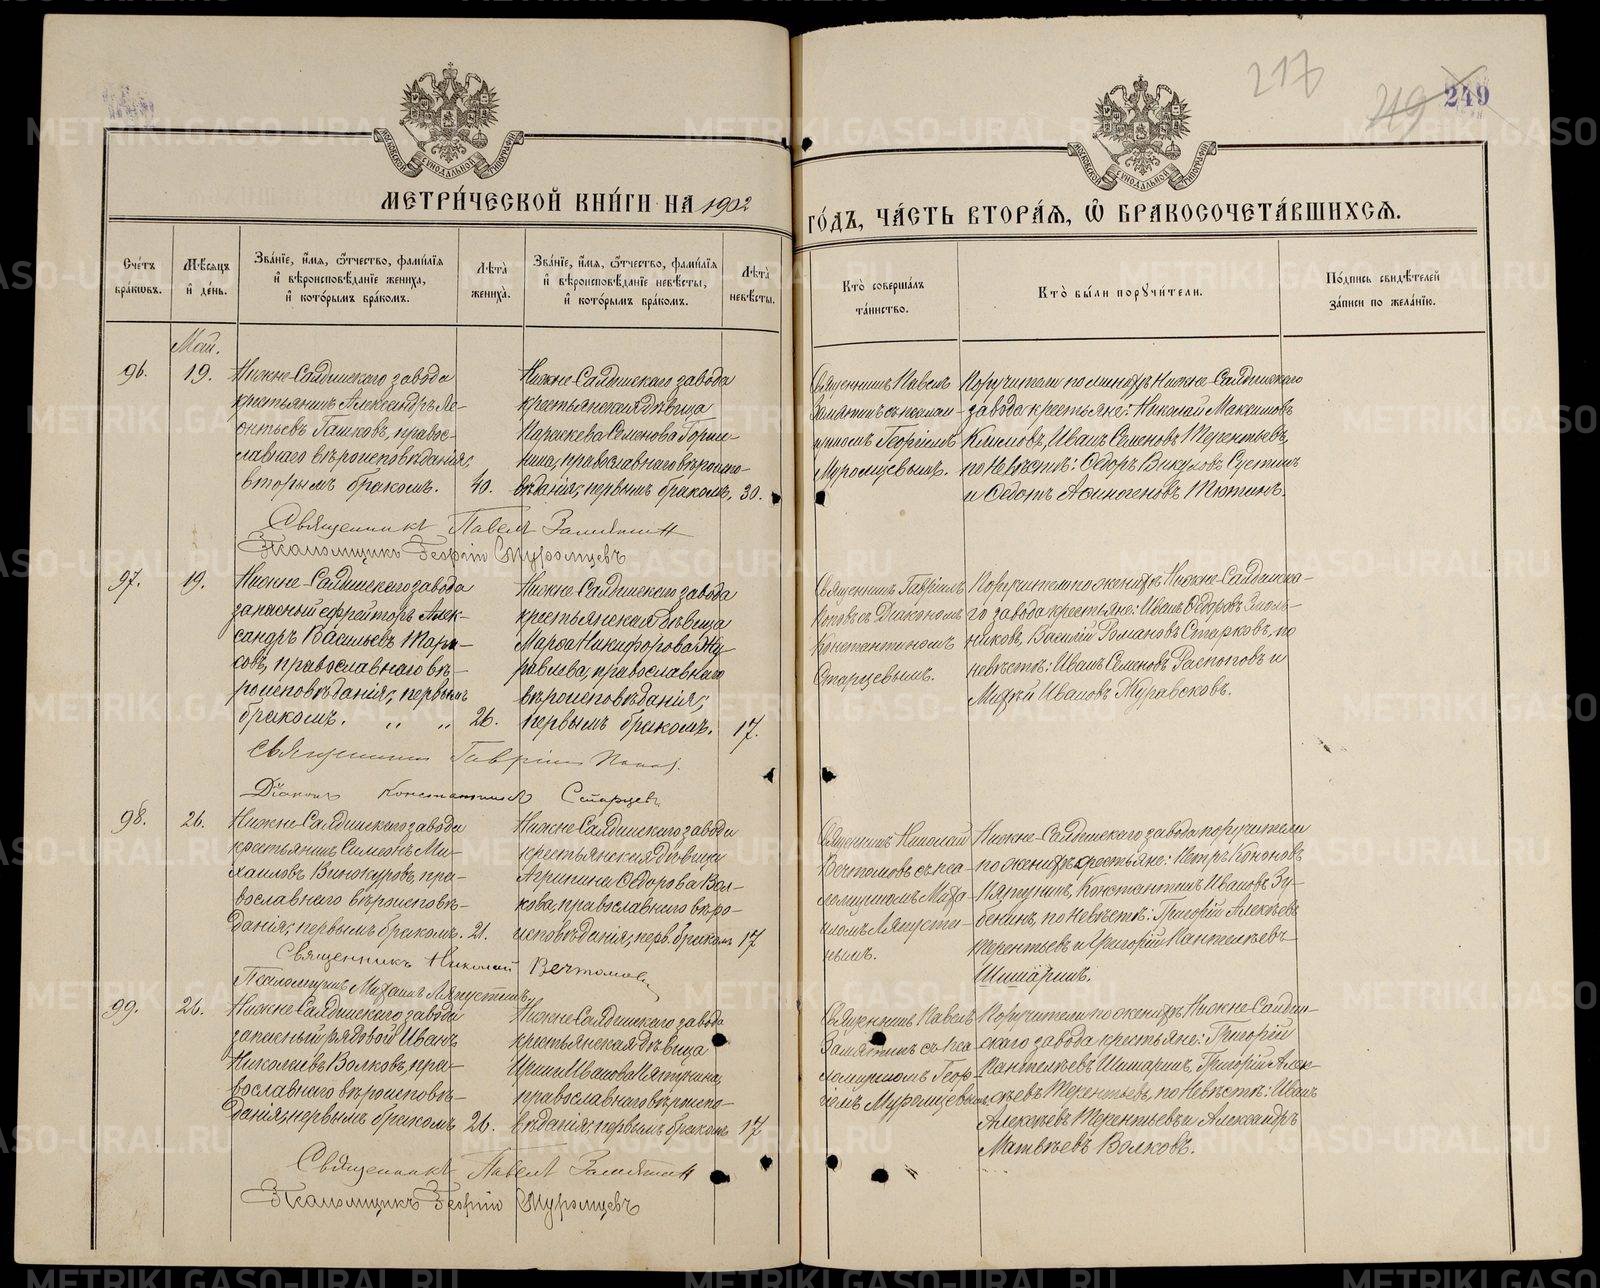 217
219
249
МОСКОВСКОЙ СѴНОДАЛЬНОЙ ТИПОГРАФІИ
МОСКОВСКОЙ СѴНОДАЛЬНОЙ ТИПОГРАФІИ
МЕТРИ́ЧЕСКОЙ КНИ́ГИ НА 1902
ГО́ДЪ, ЧА́СТЬ ВТОРА́Ѧ, Ѽ БРАКОСОЧЕТА́ВШИХСѦ.
Сче́тъ бра́кѡвъ.
Мѣ́сѧцъ и҆ де́нь.
Зва́нїе, и҆́мѧ, ѻ҆́тчество, фамиі́лїѧ
и҆ вѣроисповѣ́данїе жениха̀,
и҆ кото́рымъ бра́комъ.
Лѣ́та жениха̀.
Зва́нїе, и҆́мѧ, ѻ҆́тчество, фами́лїѧ
и҆ вѣроисповѣ́данїе невѣ́сты,
и҆ кото́рымъ бра́комъ.
Лѣ́та невѣ́сты.
Кто̀ соверша́лъ
та́инство.
Кто̀ бы́ли порꙋчи́тели.
По́дпись свидѣ́телей
за́писи по жела́нїю.
Май.
96.
19.
Нижне-Салдинскаго завода
крестьянинъ Александръ Ле-
онтьевъ Гашковъ, правос-
лавнаго вѣроисповѣданія,
вторымъ бракомъ.
40.
Нижне-Салдинскаго завода
крестьянская дѣвица
Параскева Семенова
православнаго вѣроиспо-
вѣданія; первымъ бракомъ.
30.
Священникъ Павелъ
Замятинъ съ псалом-
щикомъ Георгіемъ
Муромцевымъ.
Поручители по женихѣ Нижне-Салдинскаго
завода крестьяне: Николай Максимовъ
Климовъ, Иванъ Семеновъ Терентьевъ,
по Невѣстѣ: Ѳедоръ Викуловъ Сустинъ
и Ѳедотъ Аѳиногеновъ Тютинъ.
Священникъ Павелъ Замятинъ
Псаломщикъ Георгій Муромцевъ
97.
19.
Нижне-Салдинскаго завода
запасный ефрейторъ Алек-
сандръ Васильевъ Тара-
совъ, православнаго вѣ-
роисповѣданія; первымъ
бракомъ. „ „
26.
Нижне-Салдинскаго завода
крестьянская дѣвица
Марѳа Никифорова Жу-
равлева, православнаго
вѣроисповѣданія;
первымъ бракомъ.
17.
Священникъ Гавріилъ
Поповъ съ Діакономъ
Константиномъ
Старцевымъ.
Поручители по женихѣ Нижне-Салдинска-
го завода крестьяне: Иванъ Ѳедоровъ
Василій Романовъ Старковъ, по
невѣстѣ: Иванъ Семеновъ Распоповъ и
Ивановъ
Священникъ Гавріилъ Поповъ.
Діаконъ Константинъ Старцевъ
98.
26.
Нижне-Салдинскаго завода
крестьянинъ Симеонъ Ми-
хаиловъ Винокуровъ, пра-
вославнаго вѣроисповѣ-
данія; первымъ бракомъ.
21.
Нижне-Салдинскаго завода
крестьянская дѣвица
Агрипина Ѳедорова Вол-
кова, православнаго вѣро-
исповѣданія; перв. бракомъ
17
Священникъ Николай
Вечтомовъ съ пса-
ломщикомъ Миха-
иломъ Ляпусти-
нымъ.
Нижне-Салдинскаго завода поручители
по женихѣ крестьяне: Петръ Кононовъ
Пятунинъ, Константинъ Ивановъ Зу-
бенинъ, по Невѣстѣ: Григорій Алексѣевъ
Терентьевъ и Григорій Пантелѣевъ
Шишаринъ.
Священникъ Николай Вечтомовъ
Псаломщикъ Михаилъ Ляпустинъ.
99.
26.
Нижне-Салдинскаго завода
запасный рядовой Иванъ
Николаевъ Волковъ, пра-
вославнаго вѣроисповѣ-
данія; первымъ бракомъ
26.
Нижне-Салдинскаго завода
крестьянская дѣвица
Ирина Иванова
православнаго вѣроиспо-
вѣданія; первымъ бракомъ
17
Священникъ Павелъ
Замятинъ съ пса-
ломщикомъ Геор-
гіемъ Муромцевымъ.
Поручители по женихѣ Нижне-Салдин-
скаго завода крестьяне: Григорій
Пантелѣевъ Шишаринъ, Григорій Алек-
сѣевъ Терентьевъ, по Невѣстѣ: Иванъ
Алексѣевъ Терентьевъ и Александръ
Матвѣевъ Волковъ.
Священникъ Павелъ Замятинъ
Псаломщикъ Георгій Муромцевъ
METRIKI.GASO-URAL.RU